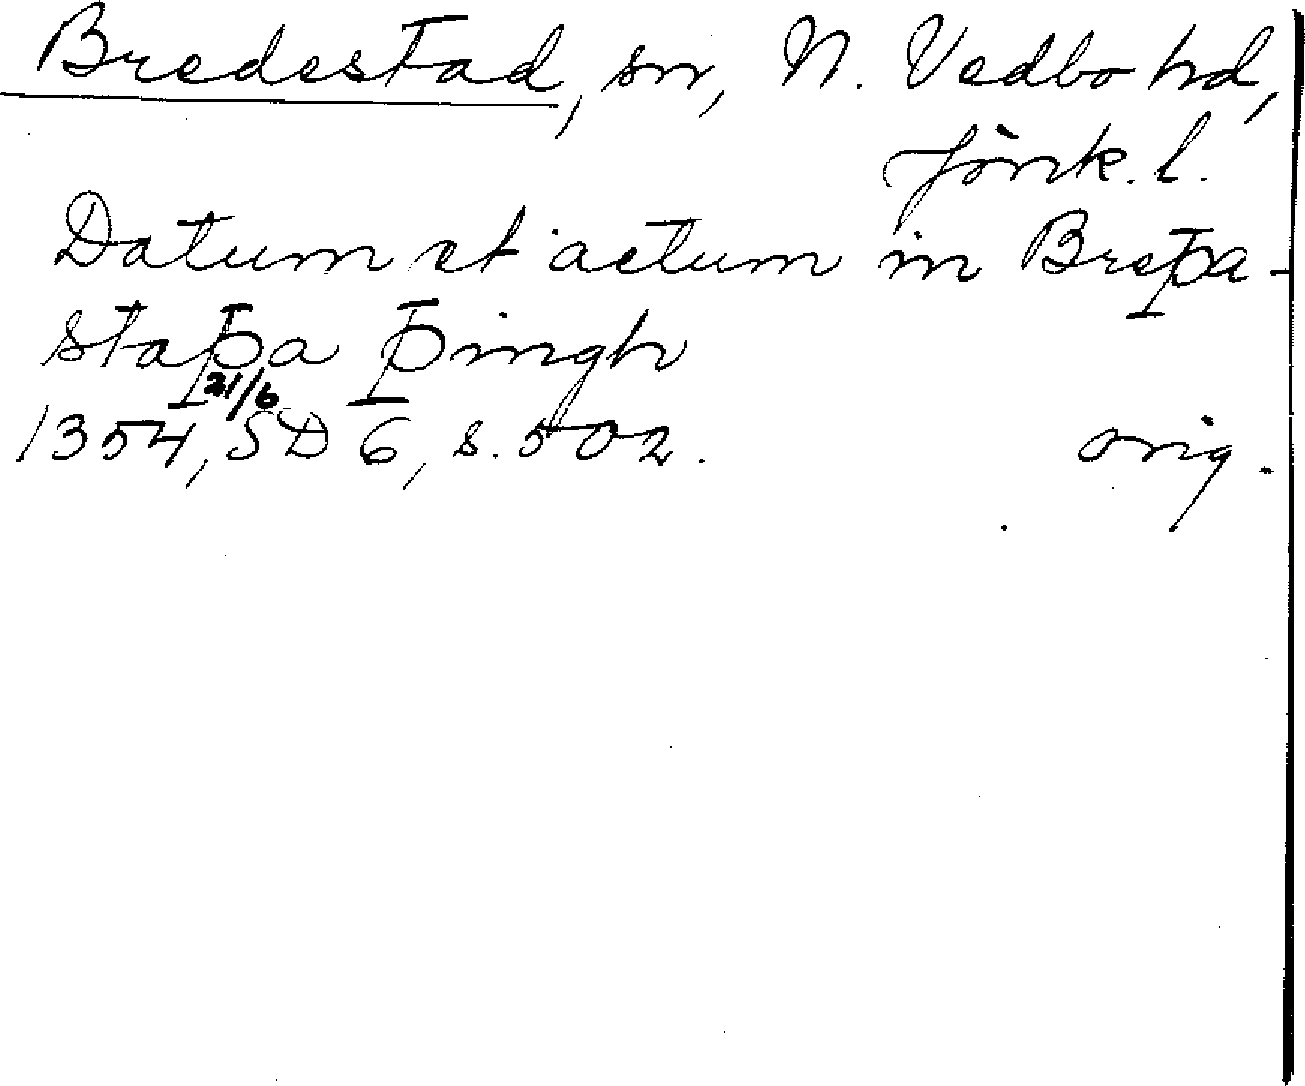 Bredestad, sn, N. Vedbo hd,
Jönk. l.
Datum et actum in Breþa-
staþa þingh
21/6
1354, SD 6, s. 502. orig.